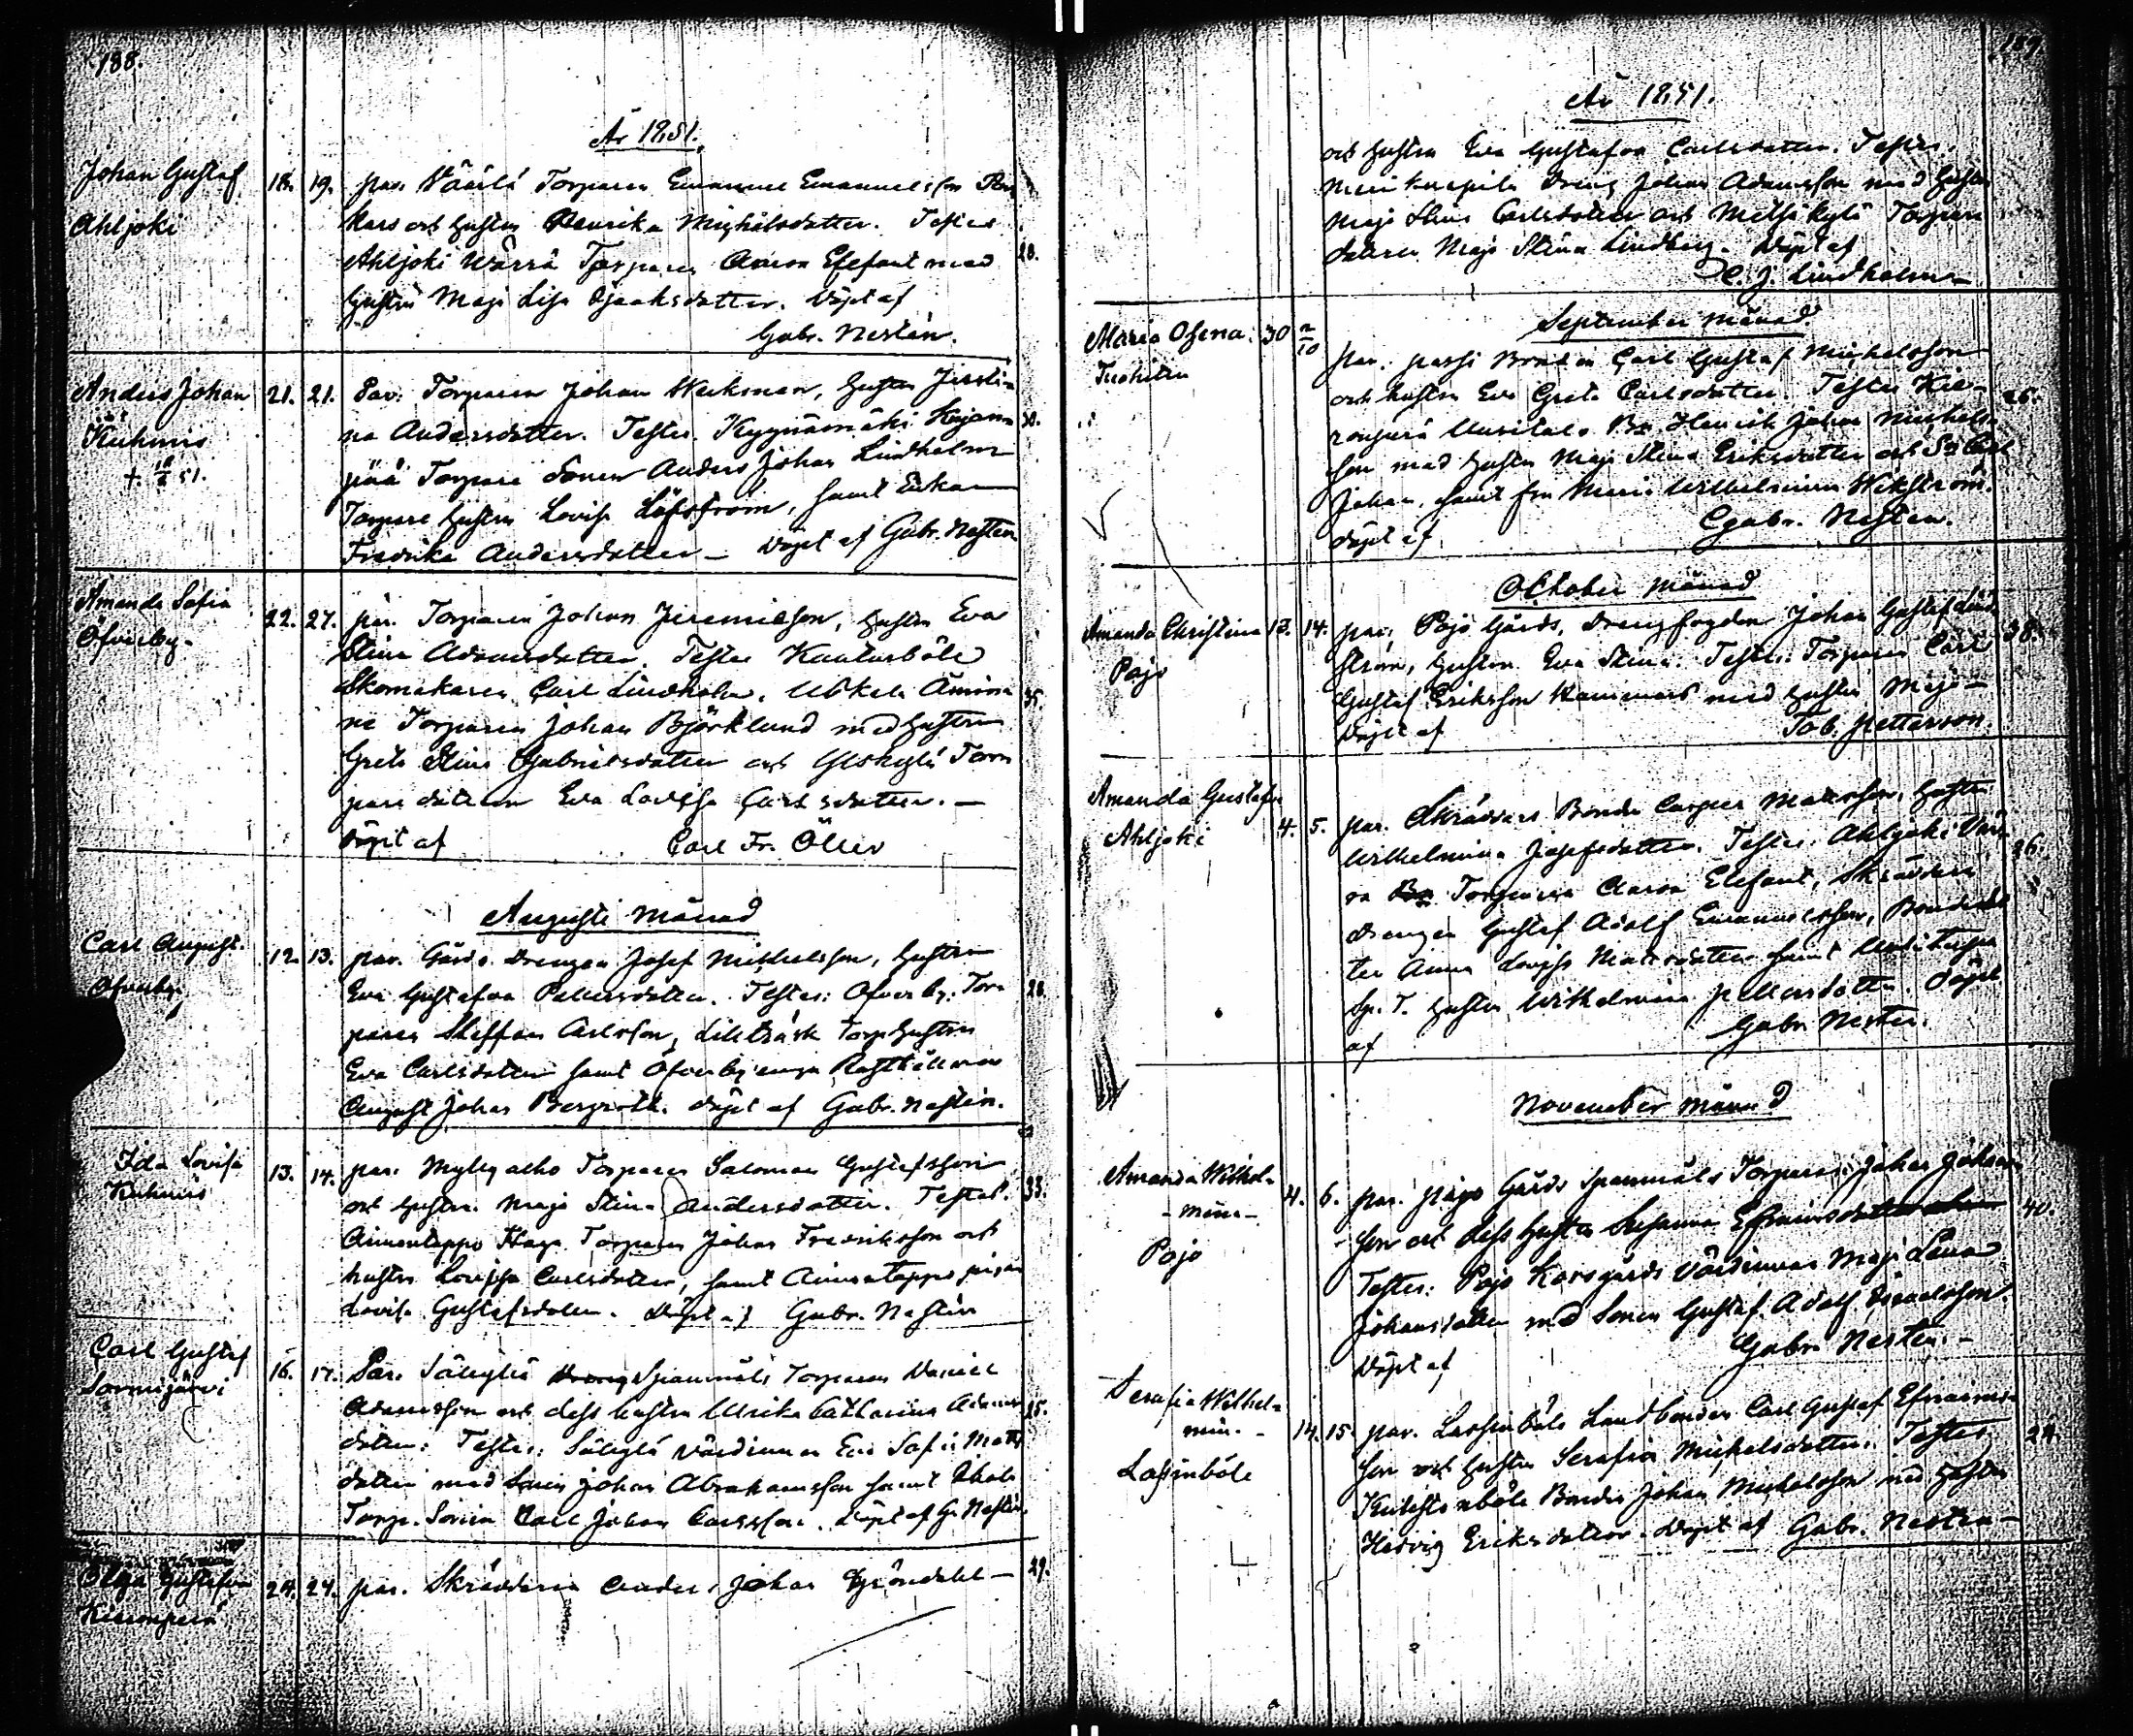 188.
År 1851.
Johan Gustaf
Ahljoki
18. 19. par. Torparen Emanuel Emanuelsson
och hustru Henrika Michelsdotter. Testes
Ahljoki Wärrä Torparen Aaron Elefant med 28.
hustru Maja Lisa Isaaksdotter. Döpt af
Gabr. Nestén.
Anders Johan
Kuhmis
21. 21. Par: Torparen Johan Weckman, hustru Justi-
na Andersdotter. Testes. Kyynämäki 30.
pää Torpare Sonen Anders Johan Lindholm
Torpare hustru Lovisa Löfström, samt Enkan
Fredrika Andersdotter – Döpt af Gabr. Nesten
Amanda Sofia
Öfverby.
22. 27. par. Torparen Johan Jeremiesson, hustru Eva
Stina Adamsdotter. Testes
Skomakaren Carl Lindholm, 35.
ne Torparen Johan Björklund med hustru
Greta Stina Gabrielsdotter och Tor-
pare dottren Eva Lovisa Carlsdotter. –
Döpt af Carl Fr. Öller
Augusti Månad
Carl August.
Öfverby.
12. 13. par. Gårds Drengen Josef Michelsson, hustru
Eva Gustafva Pettersdotter. Testes: Öfverby Tor- 28
paren Steffan Carlsson, Lillträsk Torp hustru
Eva Carlsdotter samt Öfverby unga Rusthållaren
August Johan Bergroth. Döpt af Gabr. Nestén.
Ida Lovisa
Kuhmis
13. 14. par. Myllyaho Torparen Salomon Gustafsson
och hustru Maja Stina Andersdotter. Testes. 33.
Haga Torparen Johan Fredriksson och
hustru Lovisa Carlsdotter, samt pigan
Lovisa Gustafsdotter. Döpt af Gabr. Nestén
Carl Gustaf
Sormijärvi
16. 17. Par. Spanmåls Torparen Daniel
Adamsson och dess hustru Ulrika Catharina Adams- 25.
dotter: Testes: Värdinnan Eva Sofia Matts
dotter med Sonen Johan Abrahamsson samt
Torp. Sonen Carl Johan Carlsson. Döpt af G. Nestén.
Olga Gustafva
24. 24. par. Skräddaren Anders Johan Gröndahl – 29.
189.
År 1851.
och hustru Eva Gustafva Carlsdotter. Testes.
Dreng Johan Adamsson med hustru
Maja Stina Carlsdotter och Torpare
dottren Maja Stina Lindberg. Döpt af
C. J. Lindholm
September Månad
Maria Osena.
30 2/10 par. Bonden Carl Gustaf Michelsson
och hustru Eva Greta Carlsdotter. Testes 26.
Uusitalo Bn Henrik Johan Michels-
son med hustru Maja Stina Eriksdotter och Sn Carl
Johan, samt frn Maria Wilhelmina Wikström.
Döpt af Gabr. Nesten.
Oktober Månad
Amanda Christina
Pojo
13. 14. par: Pojo Gårds, Drengfogden Johan Gustaf Lind- 38.
ström, hustrun Eva Stina. Testes: Torparen Carl
Gustaf Eriksson med hustru Maja –
Döpt af Tob. Petterson.
Amanda Gustafva
Ahljoki
4. 5. par. Skräddars Bonden Casper Mattsson, hustru
Wilhelmina Josefsdotter. Testes. Ahljoki 26.
Torparen Aaron Elefant, Skräddars
drengen Gustaf Adolf Emanuelsson, Bondedot
ter Anna Lovisa Mattsdotter samt
hustru Wilhelmina Pettersdotter. Döpt
af Gabr. Nesten.
November Månad
Amanda Wilhel-
-mina-
Pojo
4. 6. par. Pojo Gårds Spanmåls Torparen Johan Johans- 40.
son och dess hustru Susanna Efraimsdotter
Testes: Pojo Korsgårds Värdinnan Maja Lena
Johansdotter med Sonen Gustaf Adolf Israelsson.
Döpt af Gabr. Nesten. –
Serafia Wilhel-
min. –
Lassinböle
14. 15. par. Lassinböle Landbonden Carl Gustaf Efraims- 24.
son och hustru Serafia Michelsdotter. Testes
Bonden Johan Michelsson med hustru
Hedvig Eriksdotter. Döpt af Gabr. Nesten –